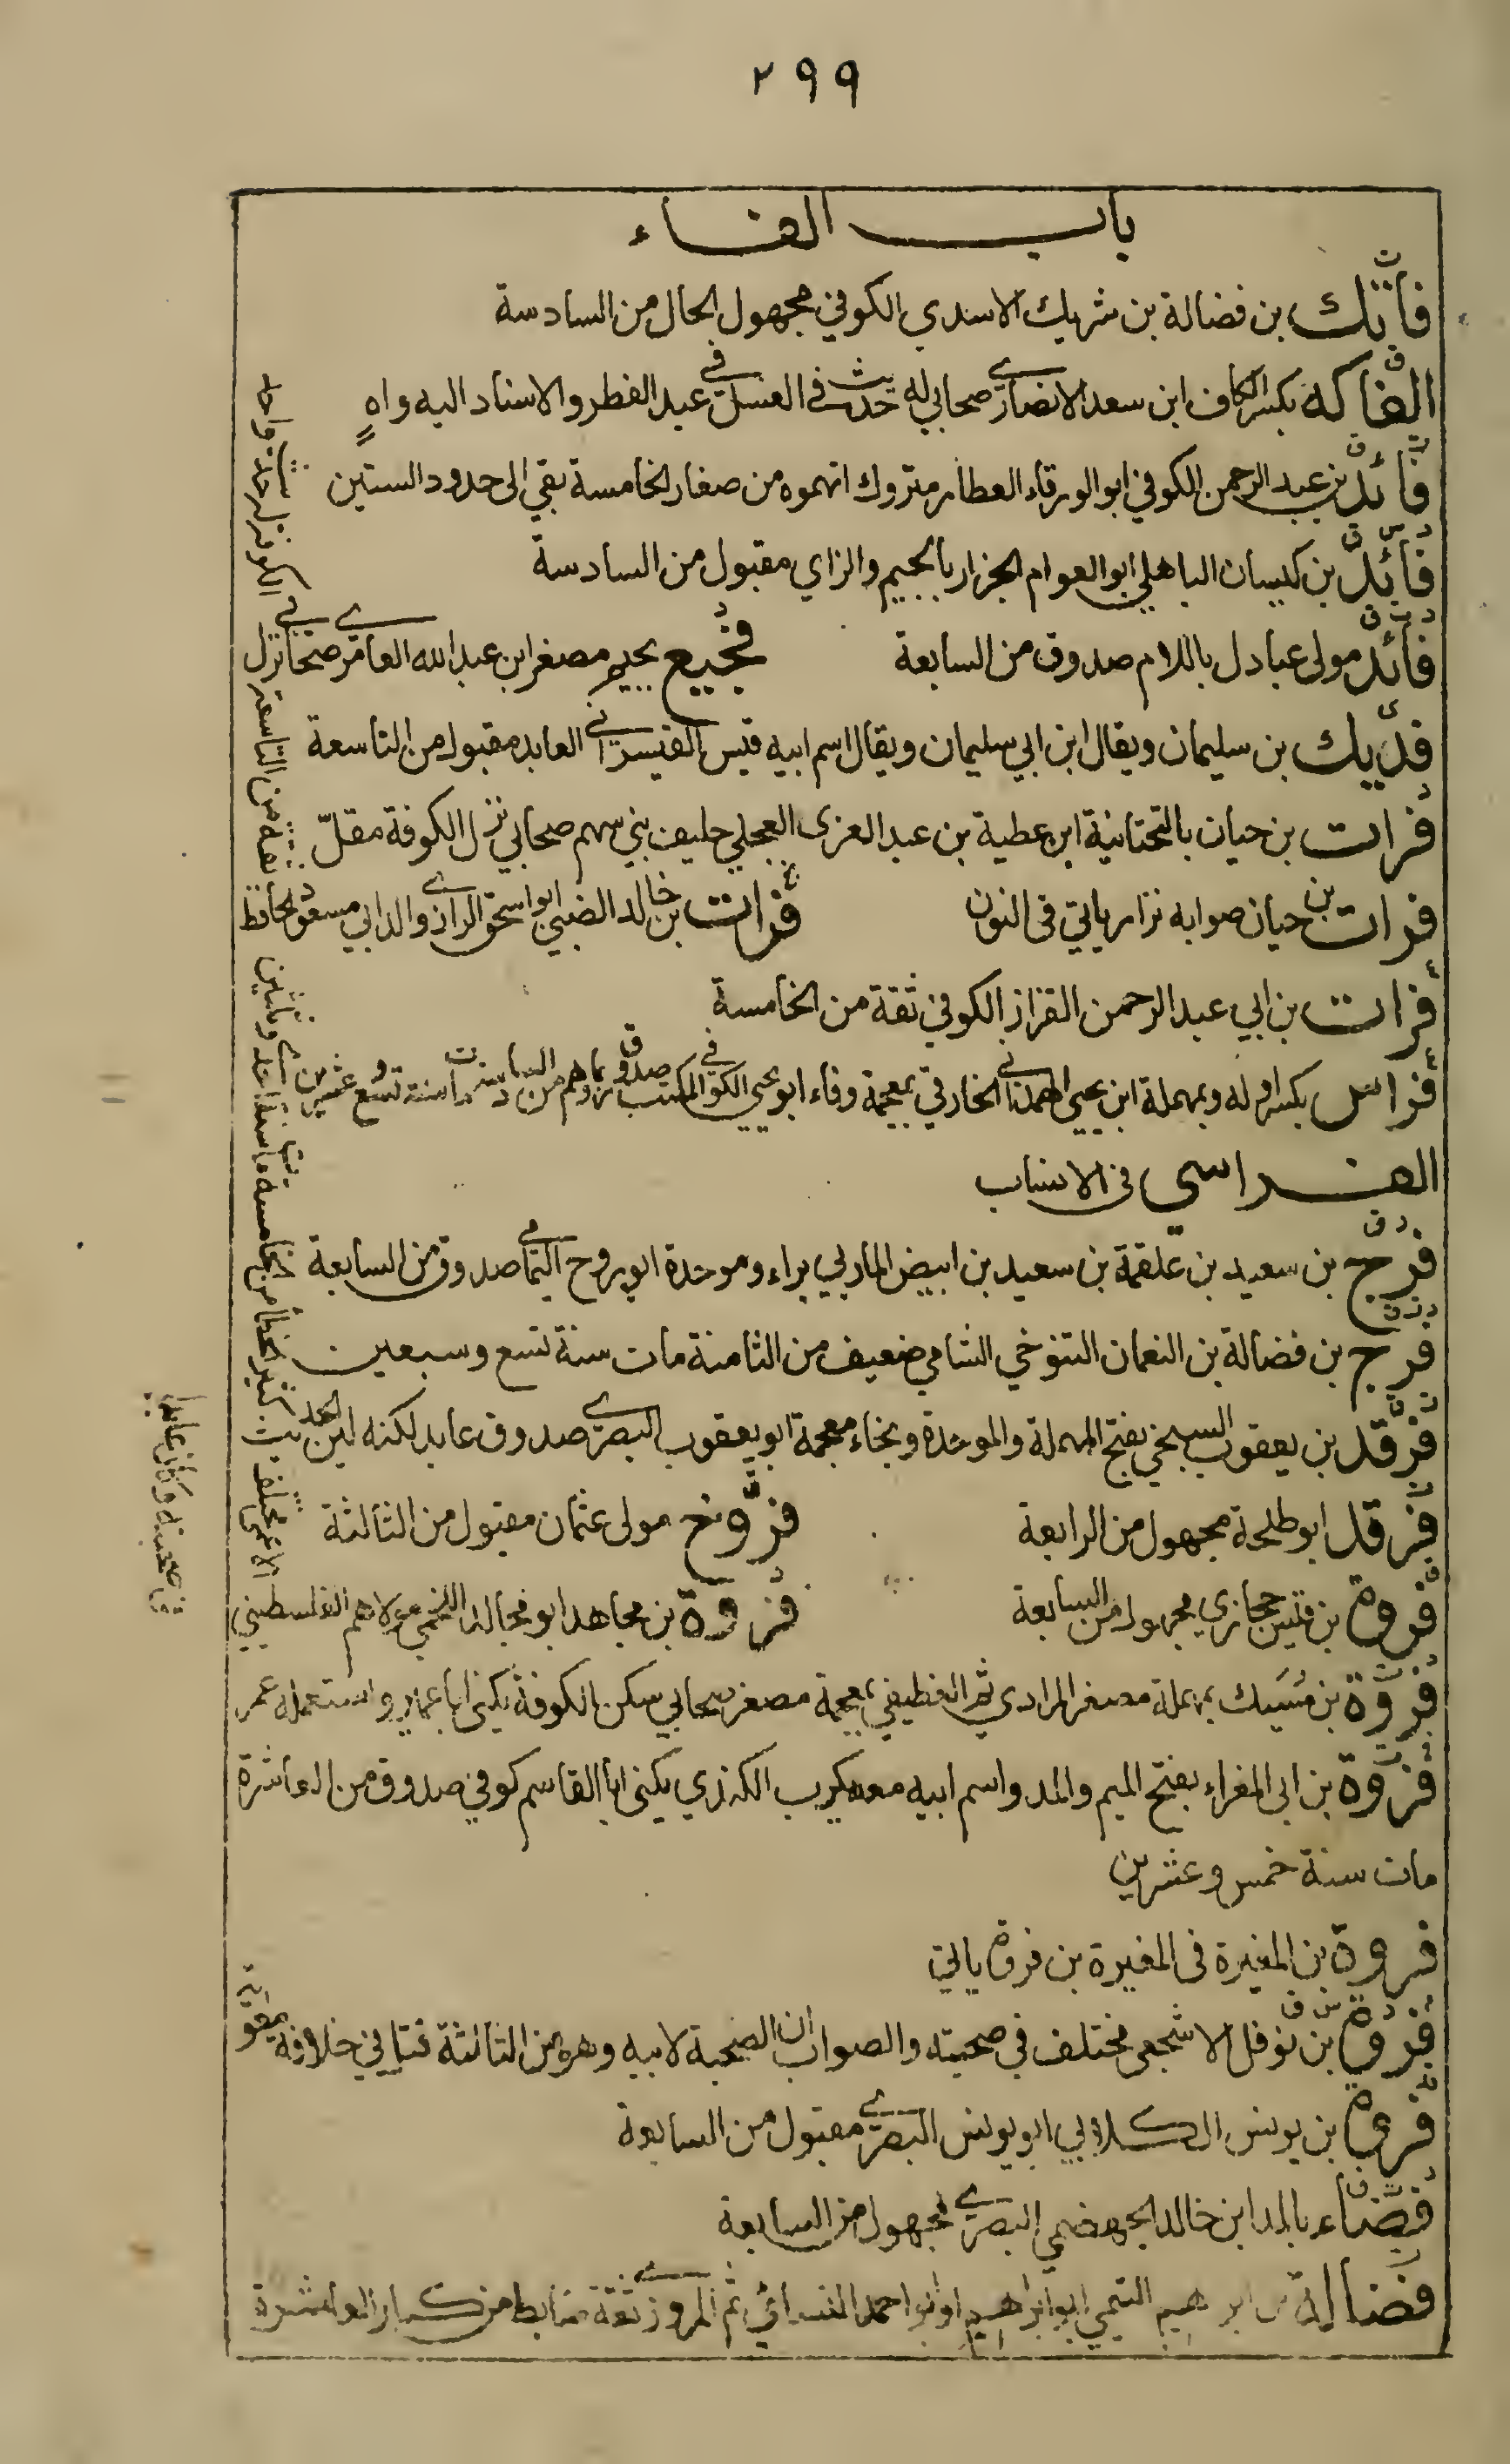 ٢٩٩
باب الفاء
ت
فاتك بن فضالة بن شريك الاسدي الكوفي مجهول الحال من السادسة
ق
الفاكه بكسر الكاف ابن سعد الانصاري صحابي له حديث في الغسل في عيد الفطر والاسناد اليه واهٍ
ت ق
فائد بن عبد الرحمن الكوفي ابو الورقاء العطار متروك اتهموه من صغار الخامسة بقي الى حدود الستين
د س ق
فائد بن كيسان الباهلي ابو العوام الجزار بالجيم والزاي مقبول من السادسة
د ت ق
فائد مولى عبادل باللام صدوق من السابعة
د
فجيع بجيم مصغر ابن عبد الله العامري صحابي نزل
الكوفة له حديث واحد
فديك بن سليمان ويقال ابن ابي سليمان ويقال اسم ابيه قيس القيسراني العابد مقبول من التاسعة
د
فرات بن حيان بالتحتانية ابن عطية بن عبد العزى العجلي حليف بني سهم صحابي نزل الكوفة مقلّ
فرات بن حيان صوابه نزار ياتي في النون
فرات بن خالد الضبي ابو اسحق الرازي والد ابي مسعود الحافظ
ثقة من التاسعة
ع
فرات بن ابي عبد الرحمن القزاز الكوفي ثقة من الخامسة
ع
فراس بكسر اوله وبمهملة ابن يحيى الهمداني الخارفي بمعجمة وفاء ابو يحيى الكوفي المكتب صدوق ربما وهم من السادسة مات سنة تسع وعشرين
الفراسي في الانساب
د ق
فرج بن سعيد بن علقمة بن سعيد بن ابيض الماربي براء وموحدة ابو روح اليماني صدوق من السابعة
د ت ق
فرج بن فضالة بن النعمان التنوخي الشامي ضعيف من الثامنة مات سنة تسع وسبعين
ت ق
فرقد بن يعقوب السبخي بفتح المهملة والموحدة وبخاء معجمة ابو يعقوب البصري صدوق عابد لكنه لين الحديث
كثير الخطأ من الخامسة مات سنة احدى وثلاثين
ت
فرقد ابو طلحة مجهول من الرابعة
ق
فروخ مولى عثمان مقبول من الثالثة
ق
فروة بن قيس حجازي مجهول من السابعة
د
فروة بن مجاهد ابو مجالد اللخمي مولاهم الفلسطيني
الاعمى مختلف في صحبته وكان عابدا
د ت
فروة بن مُسَيك بمهملة مصغر المرادي ثم الغطيفي بمعجمة مصغر صحابي سكن الكوفة يكنى ابا عمير واستعمله عمر
خ ت
فروة بن ابي المغراء بفتح الميم والمد واسم ابيه معديكرب الكندي يكنى ابا القاسم كوفي صدوق من العاشرة
مات سنة خمس وعشرين
فروة بن المغيرة في المغيرة بن فروة ياتي
م د س ق
فروة بن نوفل الاشجعي مختلف في صحبته والصواب ان الصحبة لابيه وهو من الثالثة قتل في خلافة معوية
ق
فروة بن يونس الكلابي ابو يونس البصري مقبول من السابعة
د ت ق
فضاء بالمد ابن خالد الجهضمي البصري مجهول من السابعة
س
فضالة بن ابرهيم التيمي ابو ابراهيم او ابو احمد النسائي ثم المروزي ثقة ضابط من كبار العاشرة